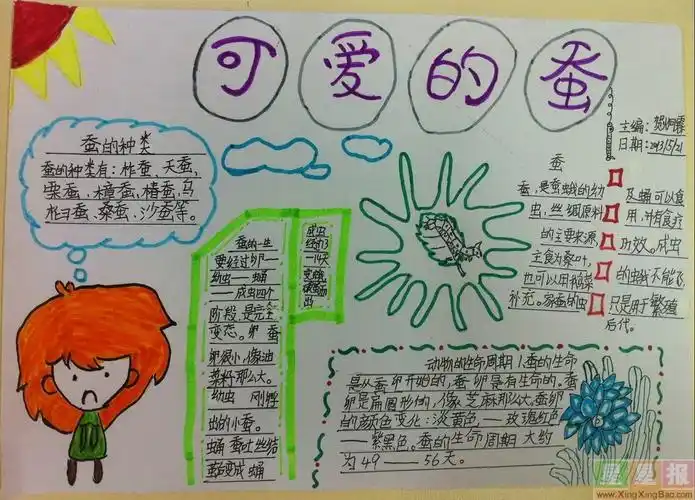 可爱的蚕
主编:
日期:2013/5/21
蚕的种类
蚕的种类有:柞蚕、天蚕,
栗蚕、樟蚕、椿蚕、马
柞ヨ蚕、桑蚕、沙蚕等。
蚕的一生
要经过卵—
幼虫——蛹
——成虫四个
阶段,是完全
变态。卵 蚕
卵很小,像油
菜籽那么大。
幼虫 刚孵
出的小蚕。
蛹 蚕吐丝结
茧变成 蛹
成虫
经约3
—14天
变蛾
出
蚕
蚕,是蚕蛾的幼
虫,丝绸原料
的主要来源,
主食为桑叶,
也可以用
补充。家蚕的虫
及蛹可以食
用,并有食疗
功效。成虫
的蚕蛾不能飞,
只是用于繁殖
后代。
动物的生命周期1.蚕的生命
是从蚕卵开始的,蚕卵是有生命的,蚕
卵是扁圆形的,像芝麻那么大,蚕卵
的颜色变化:淡黄色,——玫瑰红色
——紫黑色。蚕的生命周期大约
为49——56天。
星星报
www.XingXingBao.com